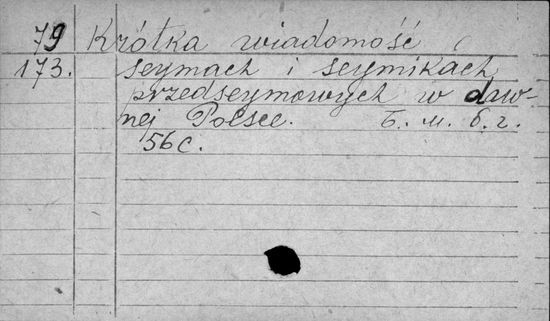 79 Krótka wiadomość
173. seymach i seymikach
przedseymowych w daw-
nej Polsce. Б. м. б. г.
56 с.